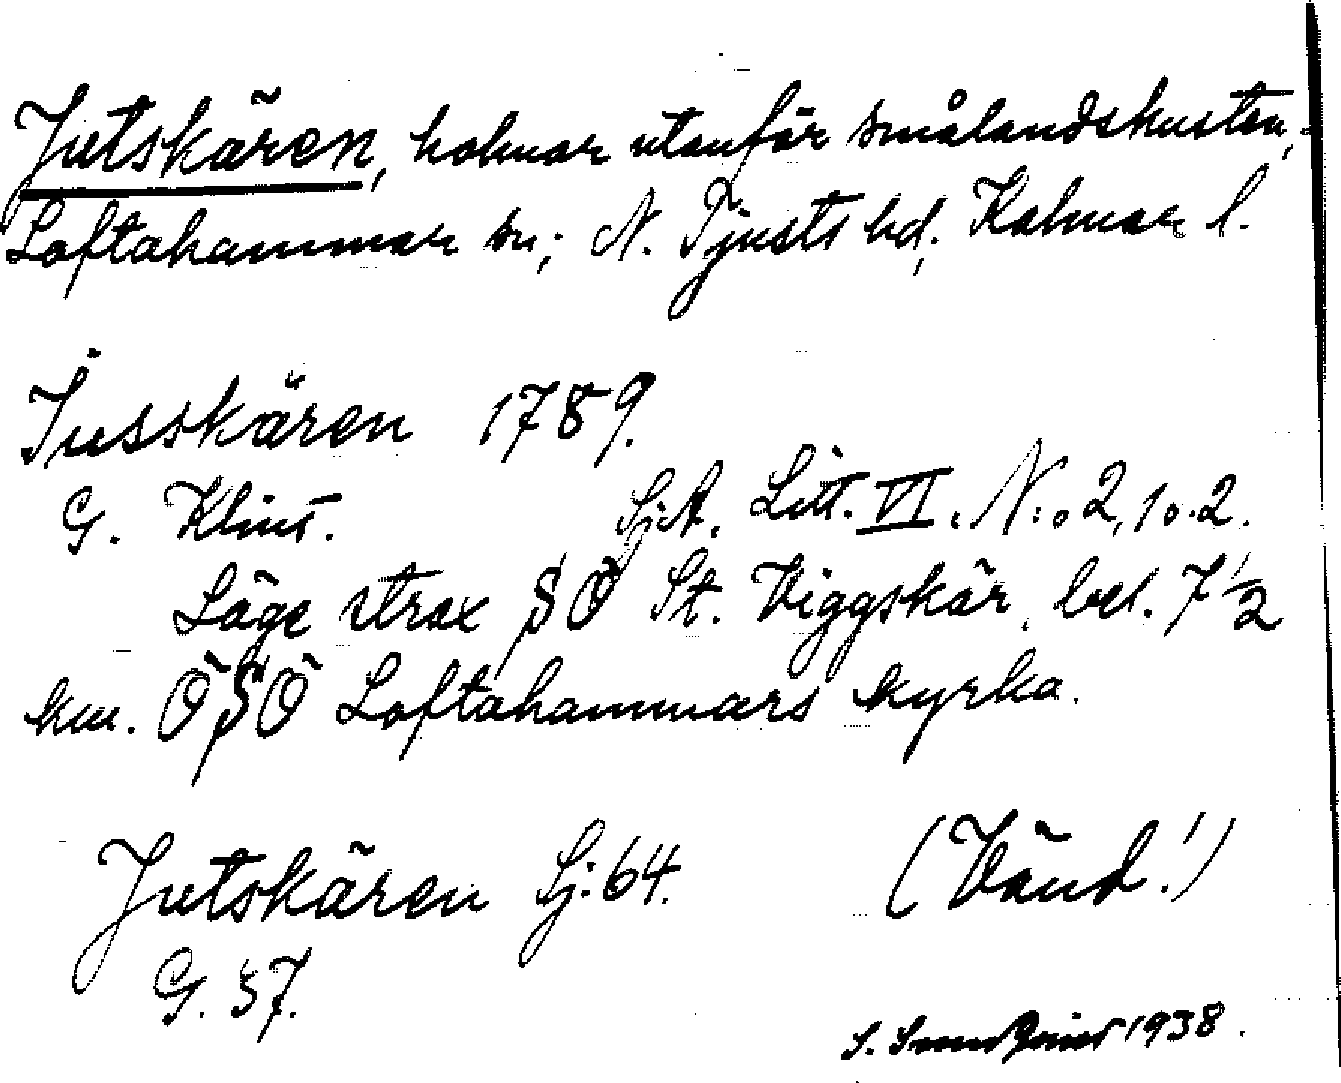 Jutskären, holmar utanför smålandskusten,
Loftahammar sn; N. Tjusts hd, Kalmar l.
Jusskären 1789.
G. Klint. Sj.A. Litt. VI. N:o 2, 1o.2.
Läge strax SO St. Viggskär, bel. 7 1/2
km. ÖSÖ Loftahammars kyrka.
Jutskären Sj:64. (Vänd!)
G. 37.
S. 1938.